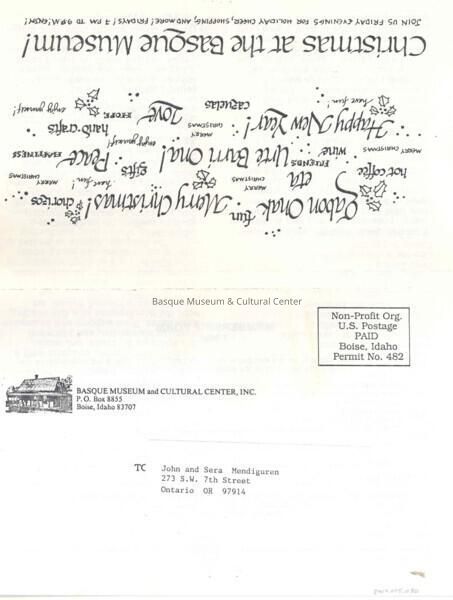 Zabon Onak fun Merry Christmas! chorizos
hot coffee eta MERRY CHRISTMAS gifts have fun! MERRY CHRISTMAS
MERRY CHRISTMAS wine FRIENDS Urte Barri Ona! enjoy yourself! Peace HAPPINESS
Happy New Year! MERRY CHRISTMAS hand-crafts
have fun cazuelas Love HOPE enjoy yourself!
Christmas at the Basque Museum!
JOIN US FRIDAY EVENINGS FOR HOLIDAY CHEER, SHOPPING, AND MORE! FRIDAYS! 7 PM TO 9 PM!
Basque Museum & Cultural Center
Non-Profit Org.
U.S. Postage
PAID
Boise, Idaho
Permit No. 482
BASQUE MUSEUM and CULTURAL CENTER, INC.
P. O. Box 8855
Boise, Idaho 83707
TO John and Sera Mendiguren
273 S.W. 7th Street
Ontario OR 97914